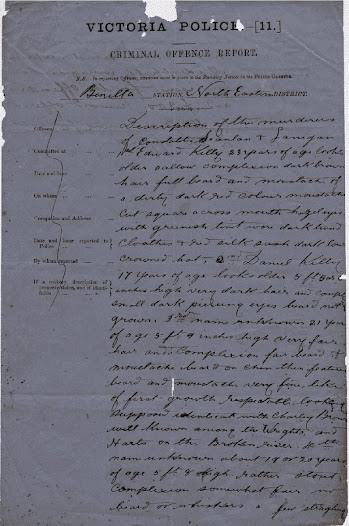 VICTORIA POLICE.—[11.]
CRIMINAL OFFENCE REPORT.
N.B. In reporting Offences, attention must be given to the Standing Notice in the Police Gazette.
Benalla STATION, North Eastern DISTRICT.
Offence
Committed at
Date and hour
On whom
Occupation and Address
Date and hour reported to
Police
By whom reported
Description of the murderers
of Constables Scanlan & Lonigan
1st Edward Kelly 23 years of age looks
older sallow complexion dark brown
hair full beard and moustache of
a dirty dark red colour moustache
cut square across mouth hazel eyes
with greenish tint wore dark tweed
clothes red silk sash dark low
crowned hat. 2nd Daniel Kelly
17 years of age looks older 5 ft 5 or 6
inches high very dark hair and comp
small dark piercing eyes beard not
grown. 3rd name unknown 21 years
of age 5 ft 9 inches high very fair
hair and complexion fair beard &
moustache beard on chin
beard and moustache very fine like
of first growth respectable looking
supposed identical with Charley Brown
well known among the Wrights and
Harts on the Broken river. 4th
name unknown about 19 or 20 years
of age 5 ft 8 high rather stout
complexion somewhat fair no
beard or whiskers a few straggling